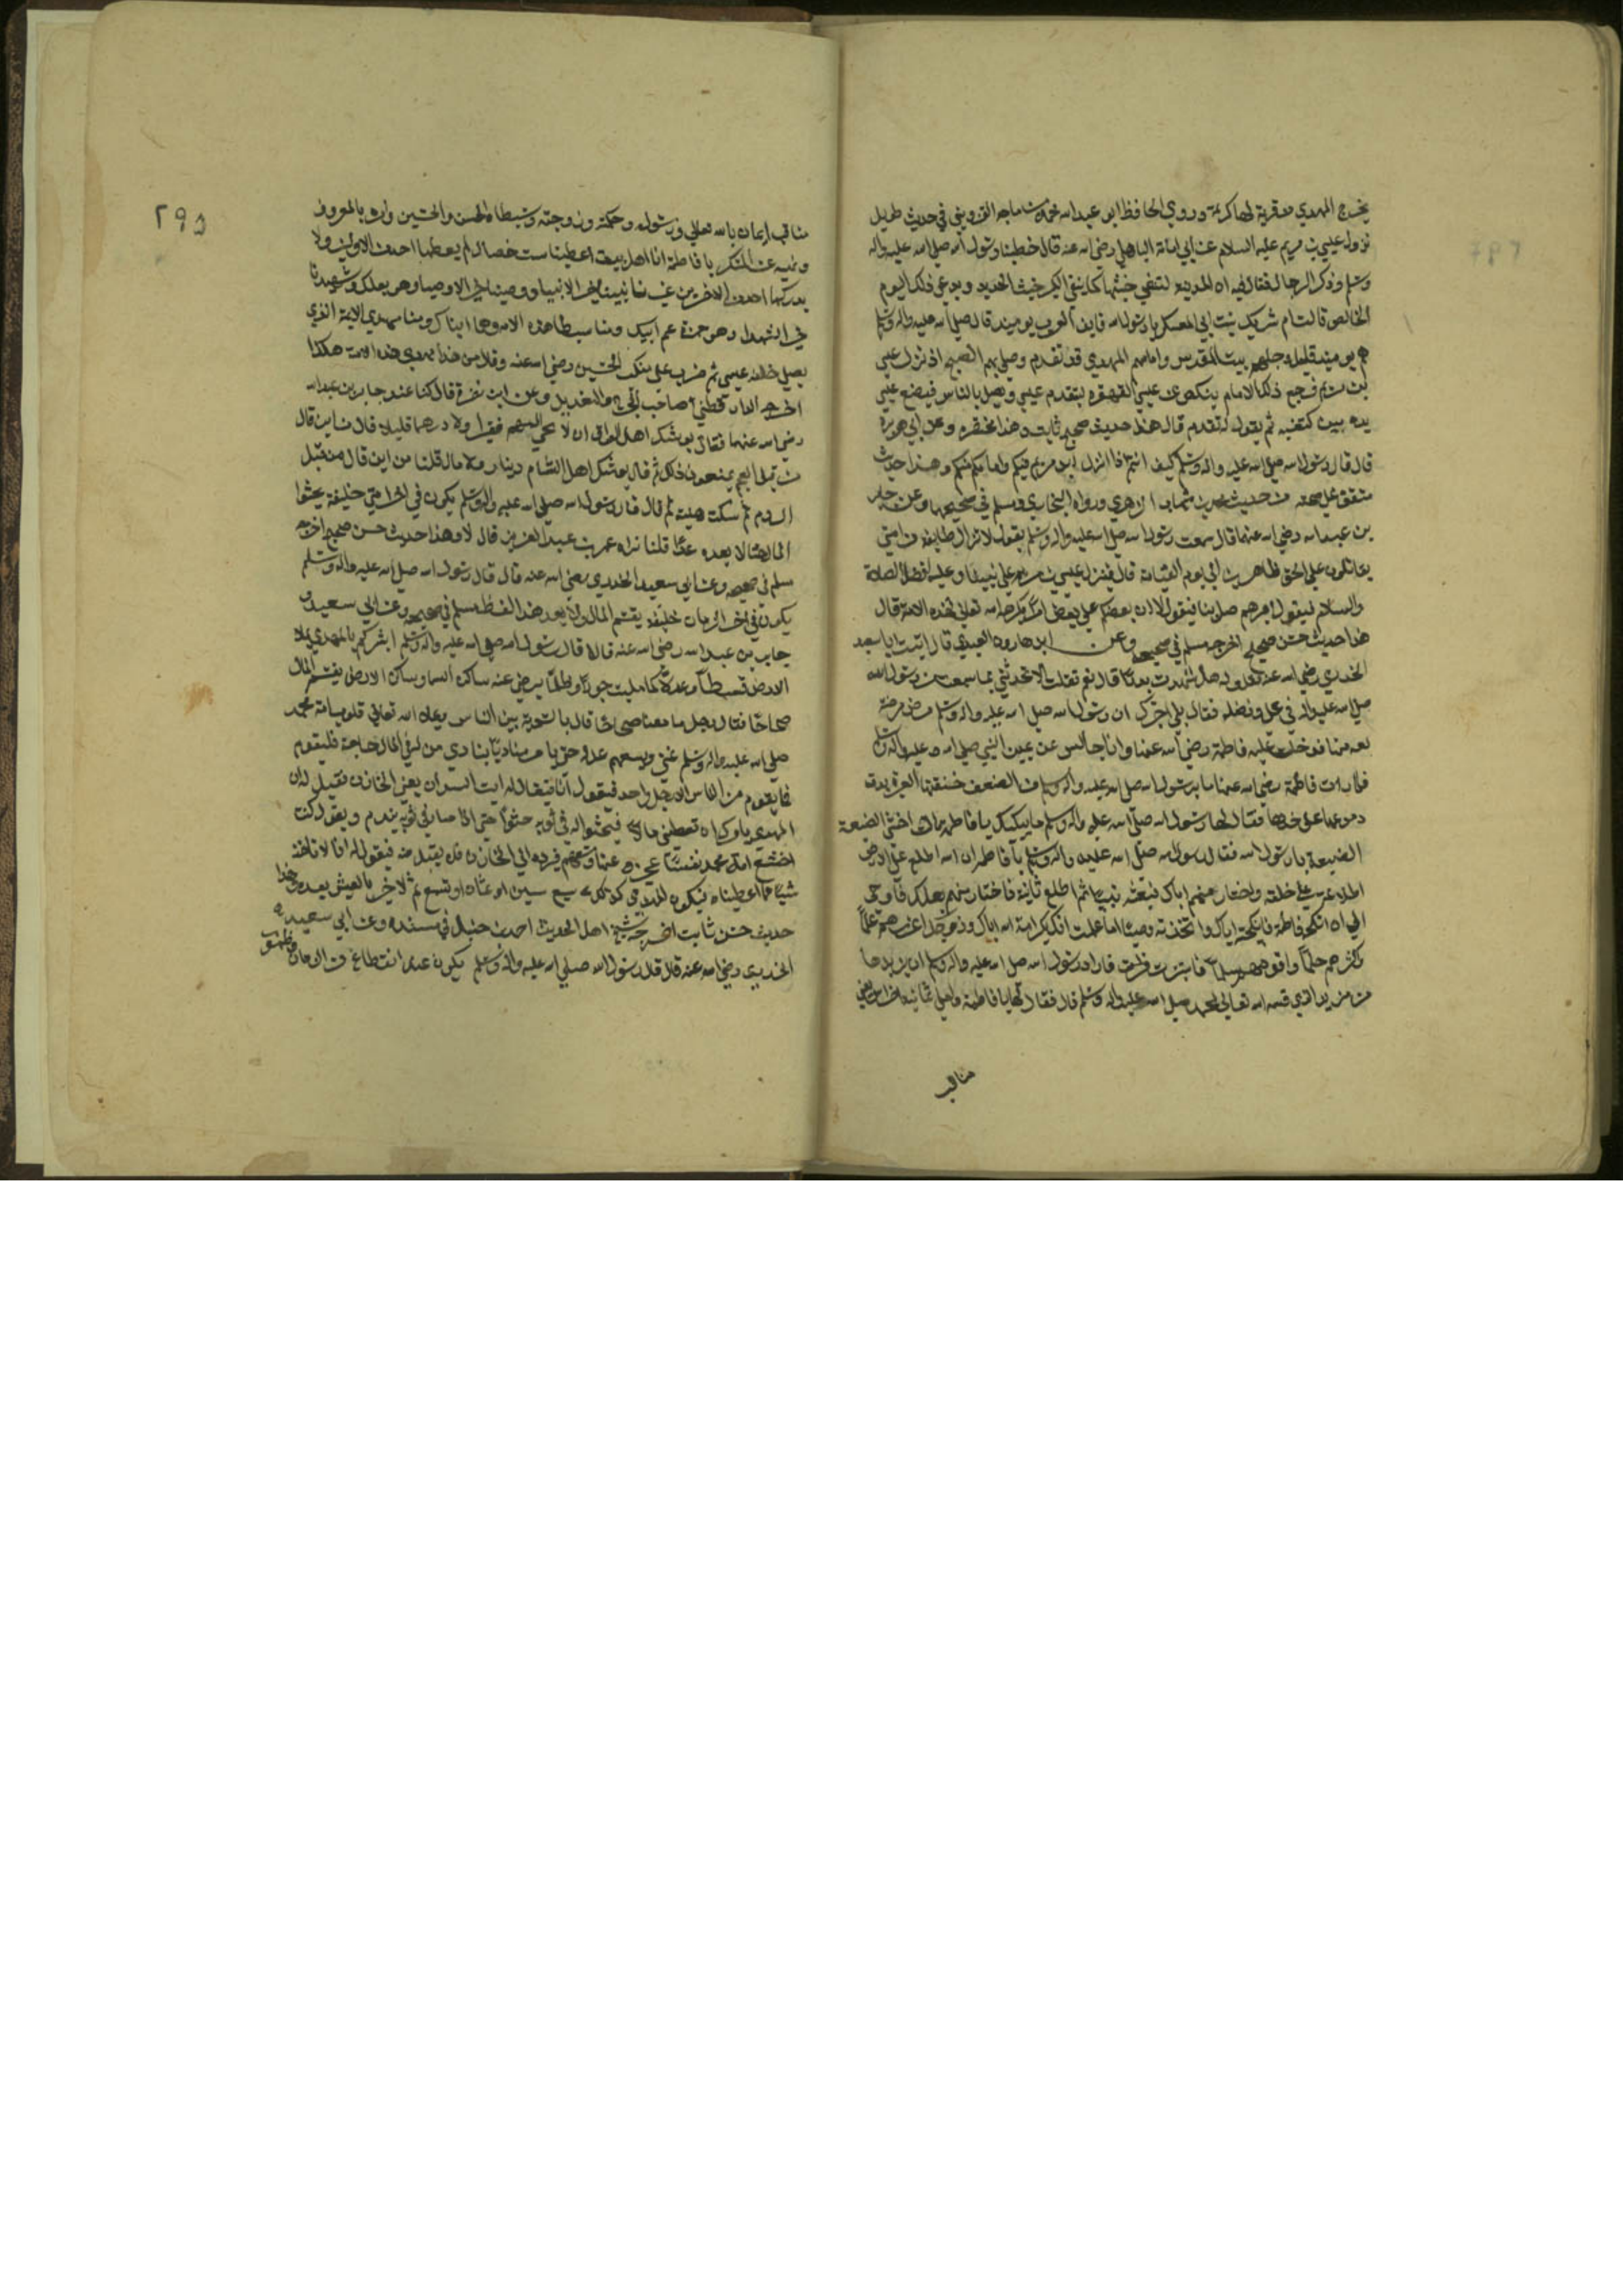 يخرج المهدي من قرية لها كرعة وروي الحافظ ابو عبد الله محمد بن ماجه القزويني في حديث طويل
نزول عيسي بن مريم عليه السلام عن ابي امامة الباهلي رضي الله عنه قال خطبنا رسول الله صلي الله عليه واله
وسلم وذكر الدجال فقال فيه ان المدينة لتنفي خبثها كما ينفي الكير خبث الحديد ويدعي ذلك اليوم
الخالص قالت ام شريك بنت ابي العسكر يا رسول الله فاين العرب يوميذ قال صلي الله عليه واله وسلم
هم يوميذ قليل وجلهم ببيت المقدس وامامهم المهدي قد تقدم وصلي بهم الصبح اذ نزل عيسي
بن مريم فرجع ذلك الامام ينكص عن عيسي القهقره ليتقدم عيسي ويصلي بالناس فيضع عيسي
يده بين كتفيه ثم يقول له تقدم قال هذا حديث صحيح ثابت وهذا مختصره وعن ابي هريرة
قال قال رسول الله صلي الله عليه واله وسلم كيف انتم اذا نزل ابن مريم فيكم وامامكم منكم وهذا حديث
متفق علي صحته من حديث محمد بن شهاب الزهري ورواه البخاري ومسلم في صحيحهما وعن جابر
بن عبد الله رضي الله عنهما قال سمعت رسول الله صلي الله عليه واله وسلم يقول لا تزال طايفة من امتي
يقاتلون علي الحق ظاهرين الي يوم القيمة قال فينزل عيسي بن مريم علي نبينا وعليه افضل الصلاة
والسلام فيقول اميرهم صل بنا فيقول الا ان بعضكم علي بعض امراء تكرمة الله تعالي لهذه الامة قال
هذا حديث حسن صحيح اخرجه مسلم في صحيحه وعن ابن هارون العبدي قال اتيت ابا سعيد
الخدري رضي الله عنه فقلت له هل شهدت بدرا قال نعم فقلت الا تحدثني بما سمعت من رسول الله
صلي الله عليه واله في علي وفضله فقال بلي اخبرك ان رسول الله صلي الله عليه واله وسلم مرض مرضة
نقه منها فدخلت عليه فاطمة رضي الله عنها وانا جالس عن يمين النبي صلي الله عليه واله وسلم
فلما رات فاطمة رضي الله عنها ما برسول الله صلي الله عليه واله وسلم من الضعف خنقتها العبرة حتي بدت
دموعها علي خدها فقال لها رسول الله صلي الله عليه واله وسلم ما يبكيك يا فاطمة قالت اخشي الضيعة
الضيعة يا رسول الله فقال رسول الله صلي الله عليه واله وسلم يا فاطمة ان الله اطلع علي الارض
اطلاعة علي خلقه فاختار منهم اباك فبعثه نبيا ثم اطلع ثانية فاختار منهم بعلك فاوحي
الي ان انكحه فاطمة فانكحته اياك واتخذته وصيا اما علمت انك بكرامة الله اياك زوجك اغزرهم علما
واكثرهم حلما واقومهم سلما فاستبشرت فاراد رسول الله صلي الله عليه واله وسلم ان يزيدها
من مزيد الذي قسمه الله تعالي لمحمد صلي الله عليه واله وسلم قال فقال لها يا فاطمة ولعلي ثمانية اضراس يعني
مناقب
٢٩٥
مناقب ايمان بالله تعالي ورسوله وحكمته وزوجته وسبطاه الحسن والحسين وامره بالمعروف
ونهيه عن المنكر يا فاطمة انا اهل بيت اعطينا ست خصال لم يعطها احد من الاولين ولا
يدركها احد من الاخرين غيرنا نبينا خير الانبيا ووصينا خير الاوصيا وهو بعلك وشهيدنا
خير الشهدا وهو حمزة عم ابيك ومنا سبطا هذه الامة وهما ابناك ومنا مهدي الامة الذي
يصلي خلفه عيسي ثم ضرب علي منكب الحسين رضي الله عنه وقال من هذا مهدي هذه الامة هكذا
اخرجه الدارقطني صاحب الجرح والتعديل وعن ابي نضرة قال كنا عند جابر بن عبد الله
رضي الله عنهما فقال يوشك اهل العراق ان لا يجي اليهم قفيز ولا درهم قلنا من اين قال
من قبل العجم يمنعون ذلك ثم قال يوشك اهل الشام دينار ولا مد قلنا من اين قال من قبل
الروم ثم سكت هنية ثم قال قال رسول الله صلي الله عليه واله وسلم يكون في اخر امتي خليفة يحثوا
المال حثيا لا يعده عدا قلنا تراه عمر بن عبد العزيز قال لا وهذا حديث حسن صحيح اخرجه
مسلم في صحيحه وعن ابي سعيد الخدري رضي الله عنه قال قال رسول الله صلي الله عليه واله وسلم
يكون في اخر الزمان خليفة يقسم المال ولا يعده هذا لفظ مسلم في صحيحه وعن ابي سعيد و
جابر بن عبد الله رضي الله عنه قالا قال رسول الله صلي الله عليه واله وسلم ابشركم بالمهدي يملا
الارض قسطا وعدلا كما مليت جورا وظلما يرضي عنه ساكن السما وساكن الارض يقسم المال
صحاحا فقال رجل ما معنا صحاحا قال بالسوية بين الناس ويملا الله تعالي قلوب امة محمد
صلي الله عليه واله وسلم غني ويسعهم عدله حتي يامر مناديا ينادي من له في المال حاجة فليقوم
فما يقوم من الناس الا رجل واحد فيقول انا فيقال له ايت السدان يعني الخازن فقيل له ان
المهدي يامرك ان تعطيني مالا فيحثوا له في ثوبه حثوا حتي اذا صار في ثوبه يندم ويقول كنت
اجشع امة محمد نفسا فيرده الي الخازن فلا يقبل منه فيقول له انا لا ناخذ
شيا مما اعطيناه فيكون المهدي كذلك سبع سنين او ثمان او تسع ثم لا خير بالعيش بعده وهذا
حديث حسن ثابت اخرجه شيخ اهل الحديث احمد بن حنبل في مسنده وعن ابي سعيد
الخدري رضي الله عنه قال قال رسول الله صلي الله عليه واله وسلم يكون عند انقطاع من الزمان